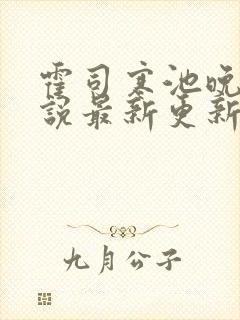 霍司寒池晚
說最新更新
九月公子